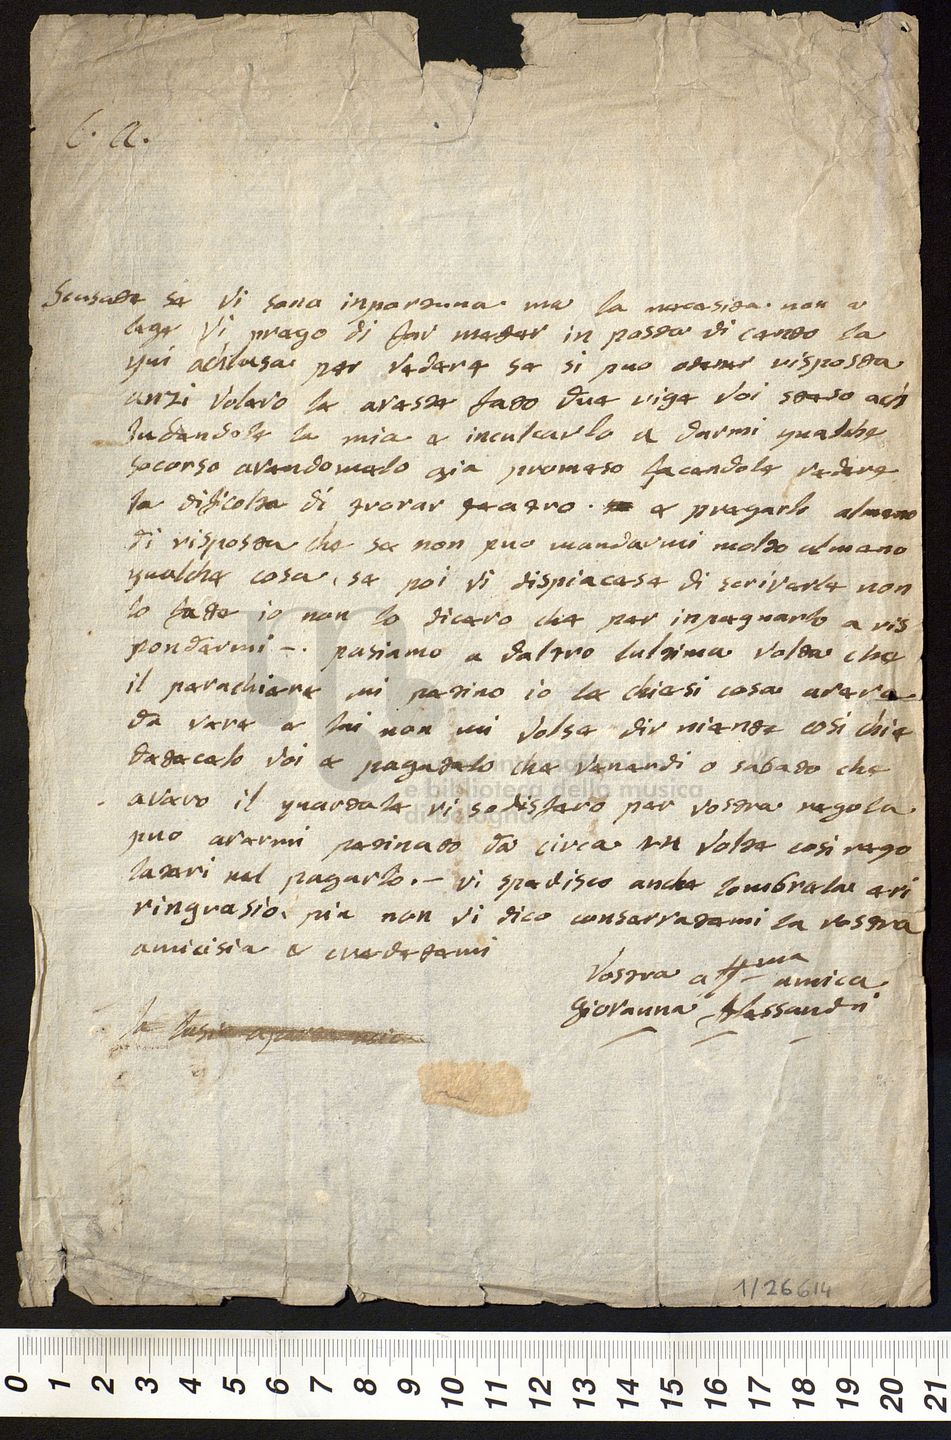 C. A.
Scusate se vi sono inportuna ma la necesita non a
lege vi prego di far meter in posta di cento la
qui achlusa per vedere se si puo otener risposta
anzi volevo le aveste fato due rige voi steso achi
ludendole la mia e inculcarlo a darmi qualche
socorso avendomelo gia promeso facendole vedere
la dificolta di trovar teatro e pregarlo almeno
di risposta che se non puo mandarmi molto almeno
qualche cosa, se poi vi dispiacese di scriverle non
lo fate io non lo dicevo che per inpegnarlo a ris
pondermi -. pasiamo a daltro lultima volta che
il parachiere mi petino io le chiesi cosa avera
da vere e lui non mi volse dir niente cosi chie
detecelo voi e pagatelo che venerdi o sabato che
avero il quartale vi sodisfero per vostra regola
puo avermi petinato da circa volte cosi rego
latevi nel pagarlo. - vi spedisco anche lombrela e vi
ringrasio, piu non vi dico conservatemi la vostra
amicisia e credetemi
Vostra affma amica
Giovanna Alessandri
la
1/26614
museo internazionale
e biblioteca della musica
di bologna
0 1 2 3 4 5 6 7 8 9 10 11 12 13 14 15 16 17 18 19 20 21